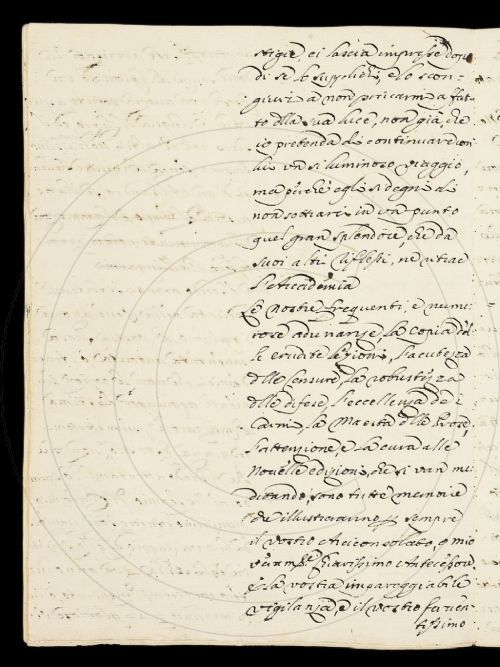 stigie, ci lascia impresse dopo
di se lo supplico, e lo scon-
giuro a non privarmi affat-
to della sua luce, non già, che
io pretenda di continuare con
lui un si luminoso viaggio,
ma perche egli si degni di
non sottrarci in un punto
quel gran splendore, che da
suoi alti riflessi, ne trae
l'Accademia
Le nostre frequenti, e nume
rose adunanze, la copia del
le erudite lezioni, l'acutezza
delle Censure, la robustezza
delle difese, l'eccellenza de i
Carmi, la Maestà delle Prose,
l'attenzione, e la cura alle
novelle edizioni, che si van me
ditando, sono tutte memorie
che illustreranno sempre
il vostro Arciconsolato, o mio
Chiarissimo Antecessore
e la vostra impareggiabile
vigilanza, e il vostro ferven-
tissimo